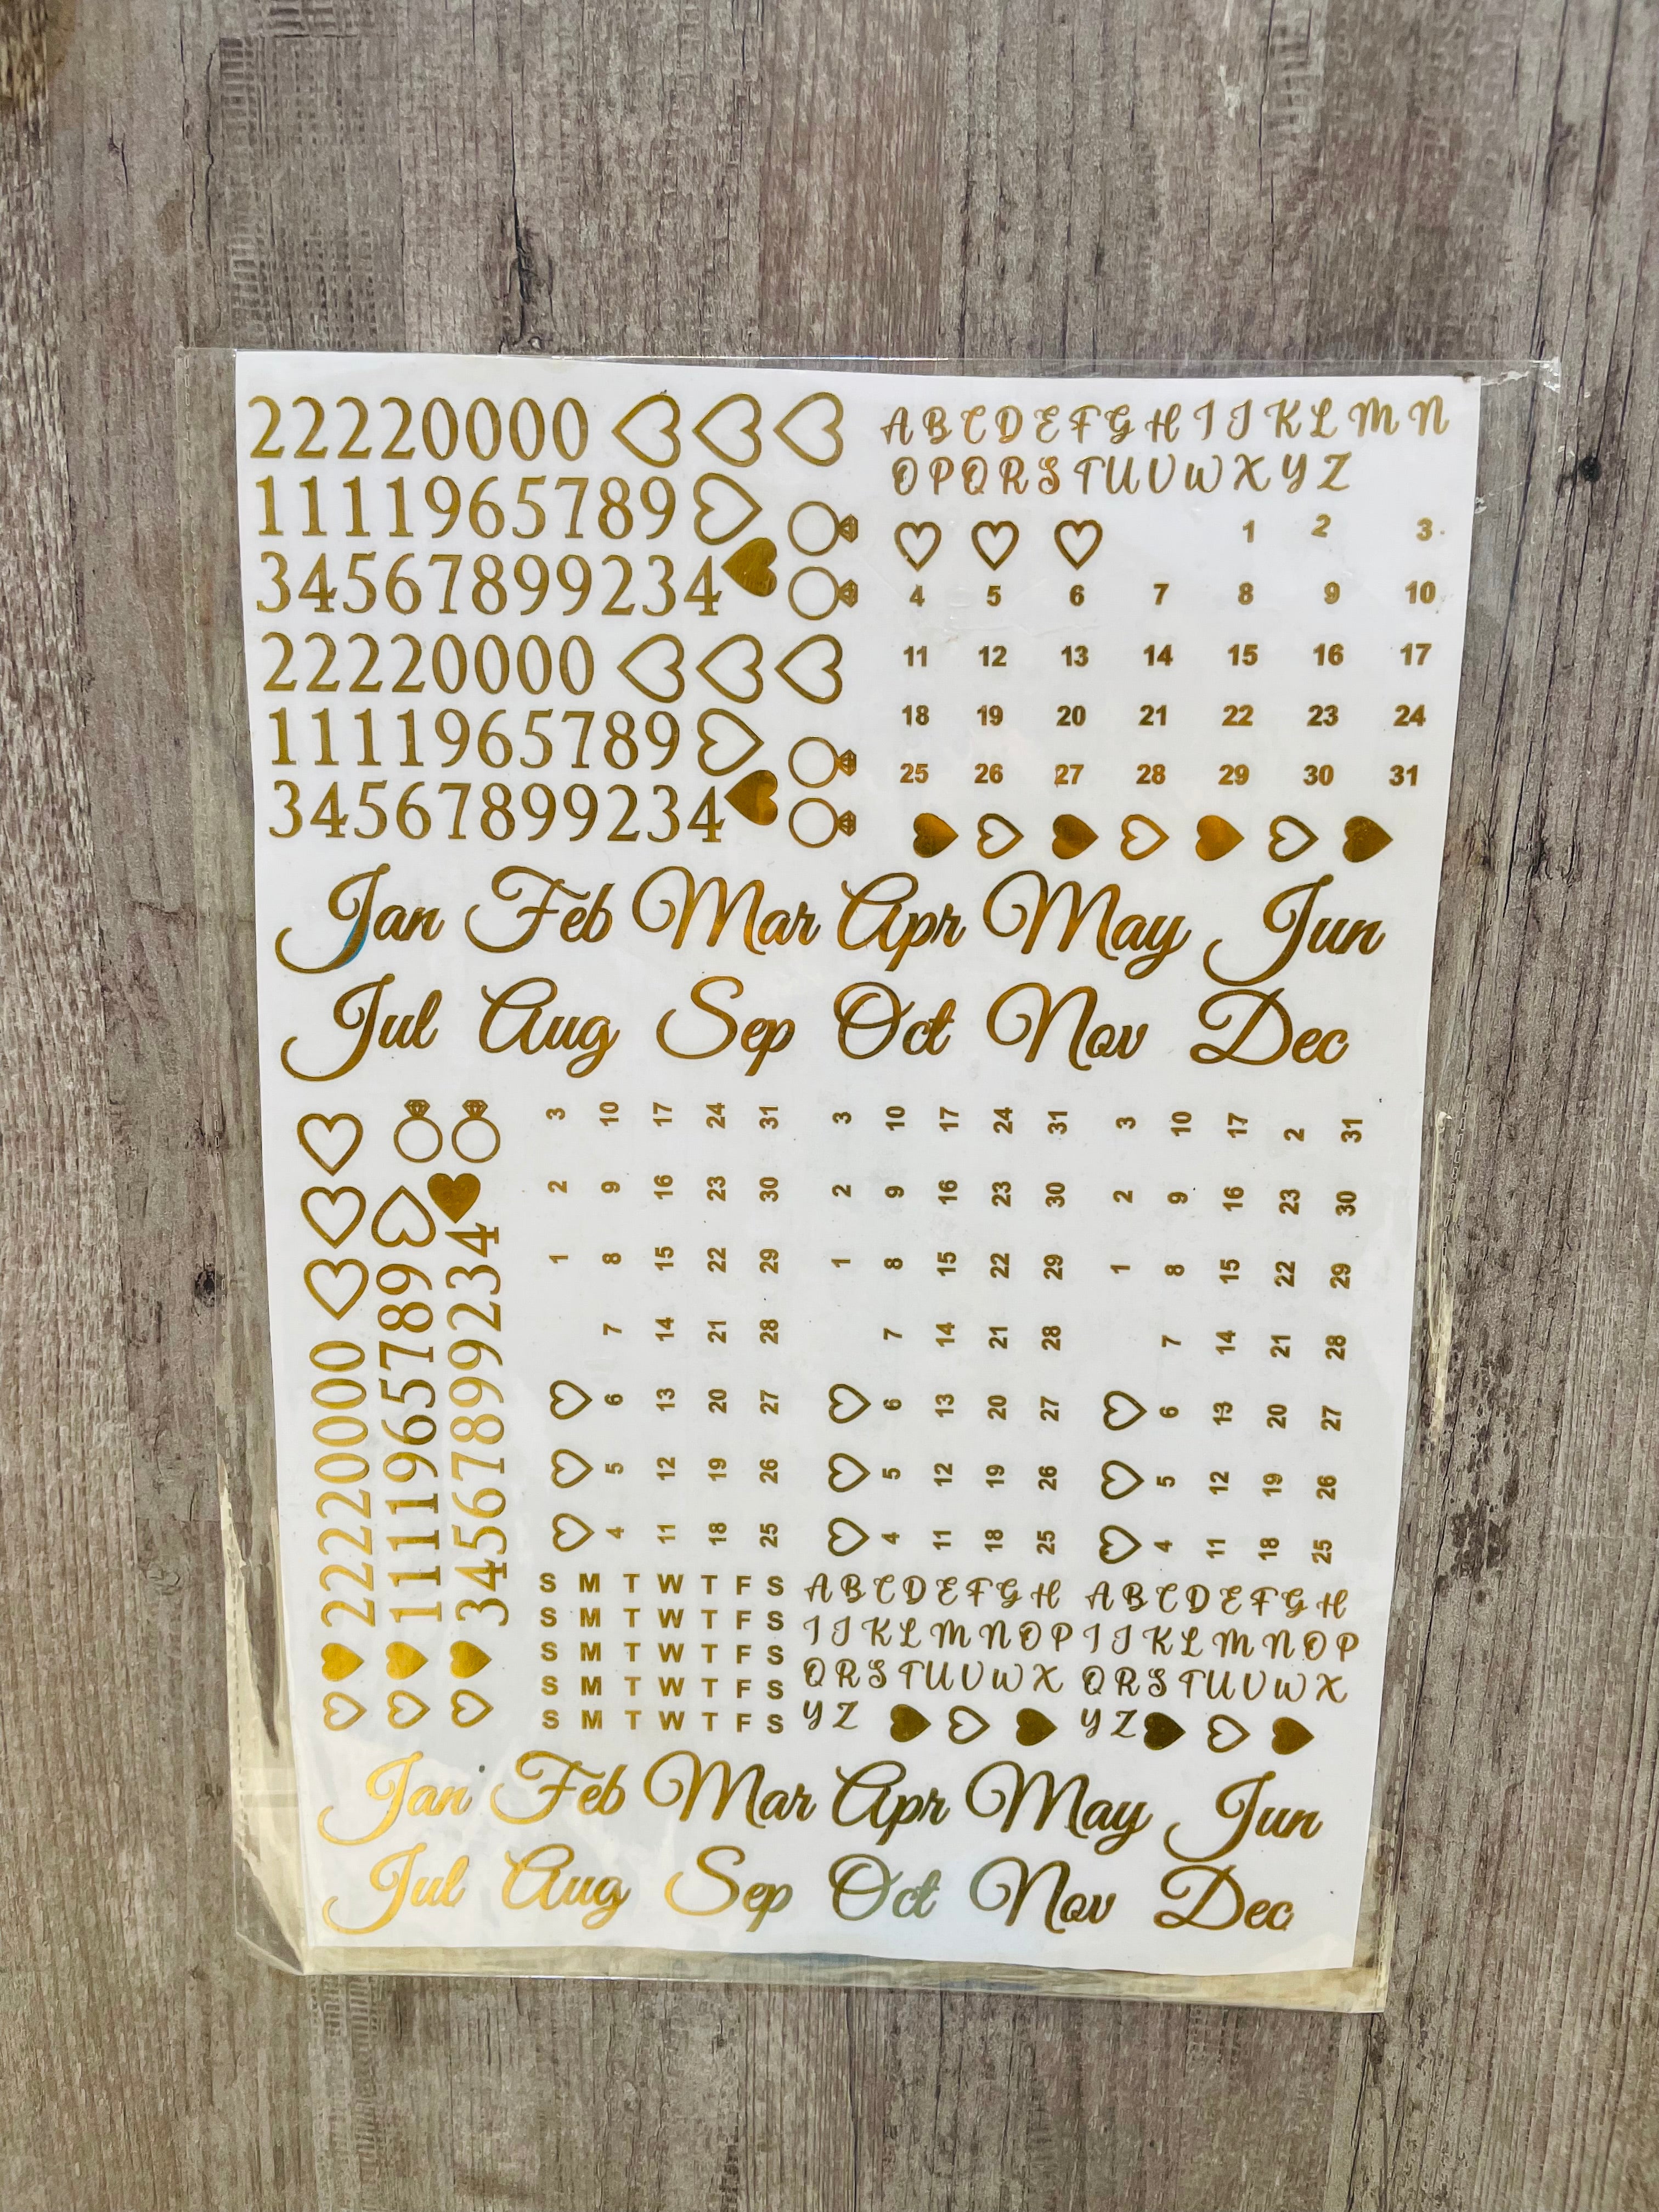 22220000
1111965789
34567899234
22220000
1111965789
34567899234
A B C D E F G H I J K L M N
O P Q R S T U V W X Y Z
1 2 3
4 5 6 7 8 9 10
11 12 13 14 15 16 17
18 19 20 21 22 23 24
25 26 27 28 29 30 31
Jan Feb Mar Apr May Jun
Jul Aug Sep Oct Nov Dec
22220000
1111965789
34567899234
1 2 3
4 5 6 7 8 9 10
11 12 13 14 15 16 17
18 19 20 21 22 23 24
25 26 27 28 29 30 31
1 2 3
4 5 6 7 8 9 10
11 12 13 14 15 16 17
18 19 20 21 22 23 24
25 26 27 28 29 30 31
1 2 3
4 5 6 7 8 9 10
11 12 13 14 15 16 17
18 19 20 21 22 23 2
25 26 27 28 29 30 31
S M T W T F S
S M T W T F S
S M T W T F S
S M T W T F S
S M T W T F S
A B C D E F G H
I J K L M N O P
Q R S T U V W X
Y Z
A B C D E F G H
I J K L M N O P
Q R S T U V W X
Y Z
Jan Feb Mar Apr May Jun
Jul Aug Sep Oct Nov Dec